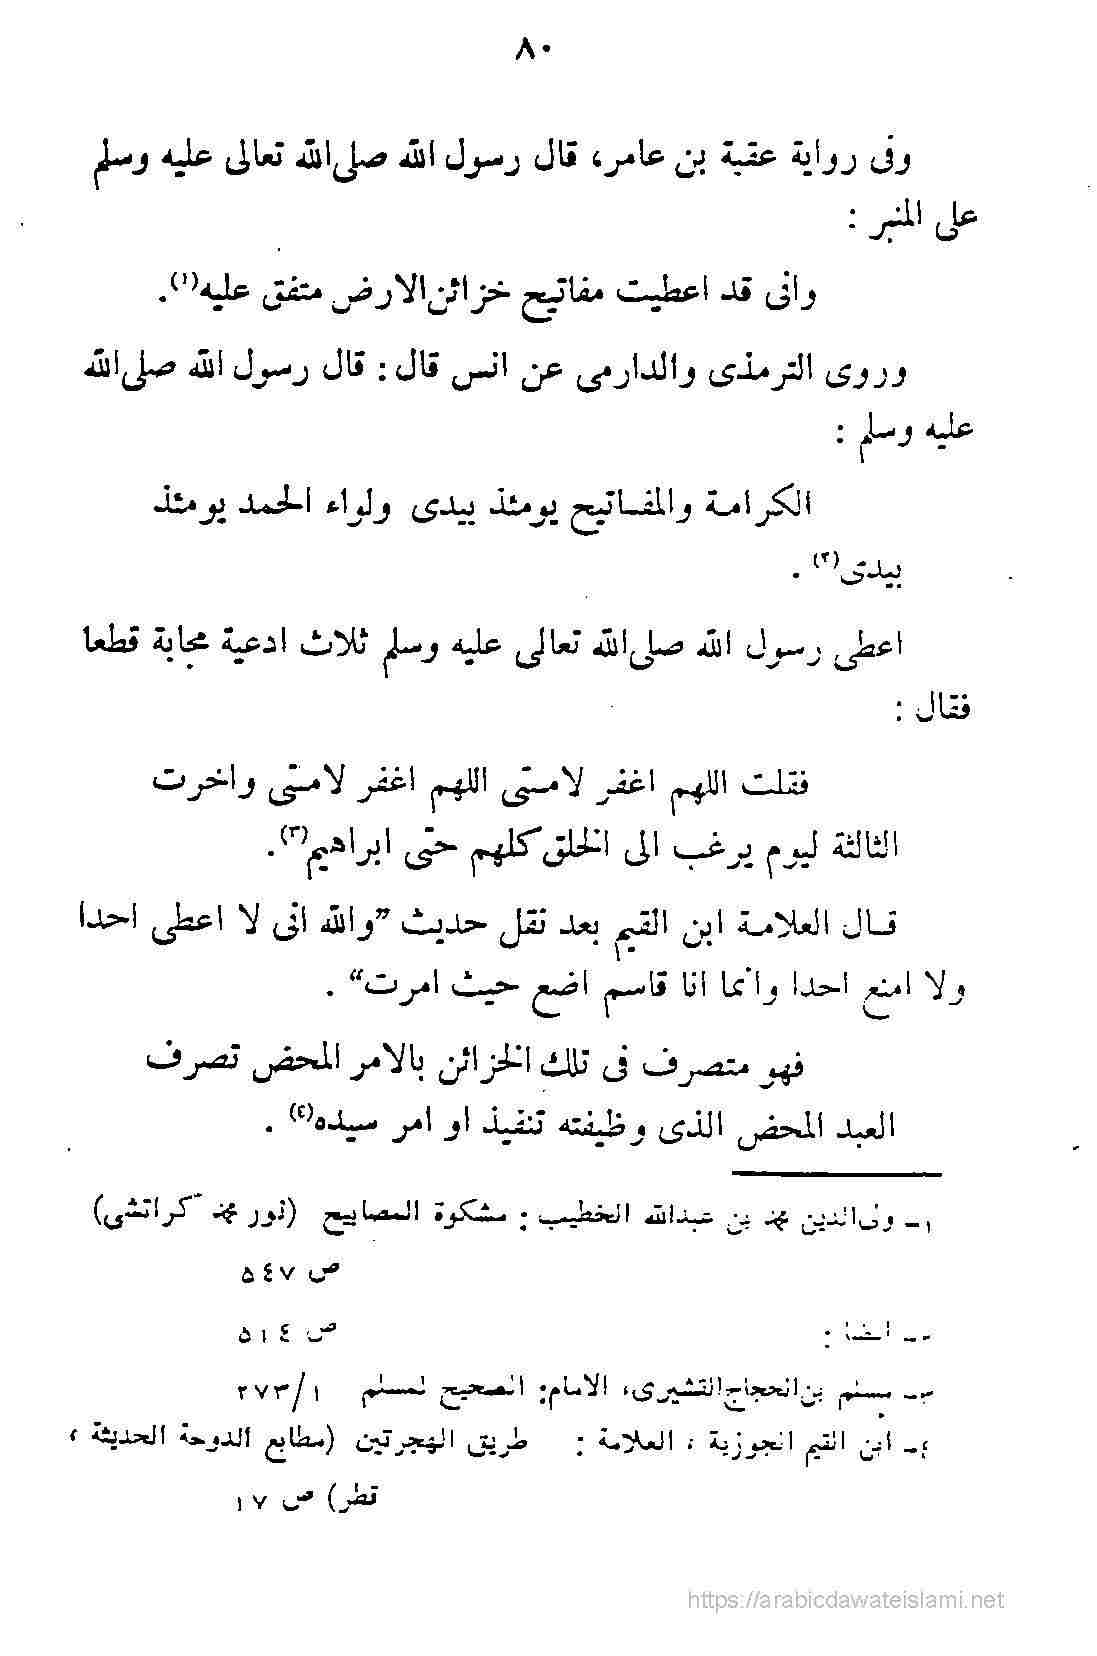 ٨٠
وفى رواية عقبة بن عامر، قال رسول الله صلى‌الله تعالى عليه وسلم
على المنبر :
وانى قد اعطيت مفاتيح خزائن‌الارض متفق عليه(١).
وروى الترمذى والدارمى عن انس قال : قال رسول الله صلى‌الله
عليه وسلم :
الكرامة والمفاتيح يومئذ بيدى ولواء الحمد يومئذ
بيدى(٢) .
اعطى رسول الله صلى‌الله تعالى عليه وسلم ثلاث ادعية مجابة قطعا
فقال :
فقلت اللهم اغفر لامتى اللهم اغفر لامتى واخرت
الثالثة ليوم يرغب الى الخلق كلهم حتى ابراهيم(٣).
قال العلامة ابن القيم بعد نقل حديث ”والله انى لا اعطى احدا
ولا امنع احدا وانما انا قاسم اضع حيث امرت“ .
فهو متصرف فى تلك الخزائن بالامر المحض تصرف
العبد المحض الذى وظيفته تنفيذ او امر سيده(٤) .
١- ولى‌الدين محمد بن عبدالله الخطيب : مشكوة المصابيح (نور محمد كراتشى)
ص ٥٤٧
٢- ايضا : ص ٥١٤
٣- مسلم بن‌الحجاج‌القشيرى، الامام: الصحيح لمسلم ٢٧٣/١
٤- ابن القيم الجوزية ، العلامة : طريق الهجرتين (مطابع الدوحة الحديثة ،
قطر) ص ١٧
https://arabicdawateislami.net